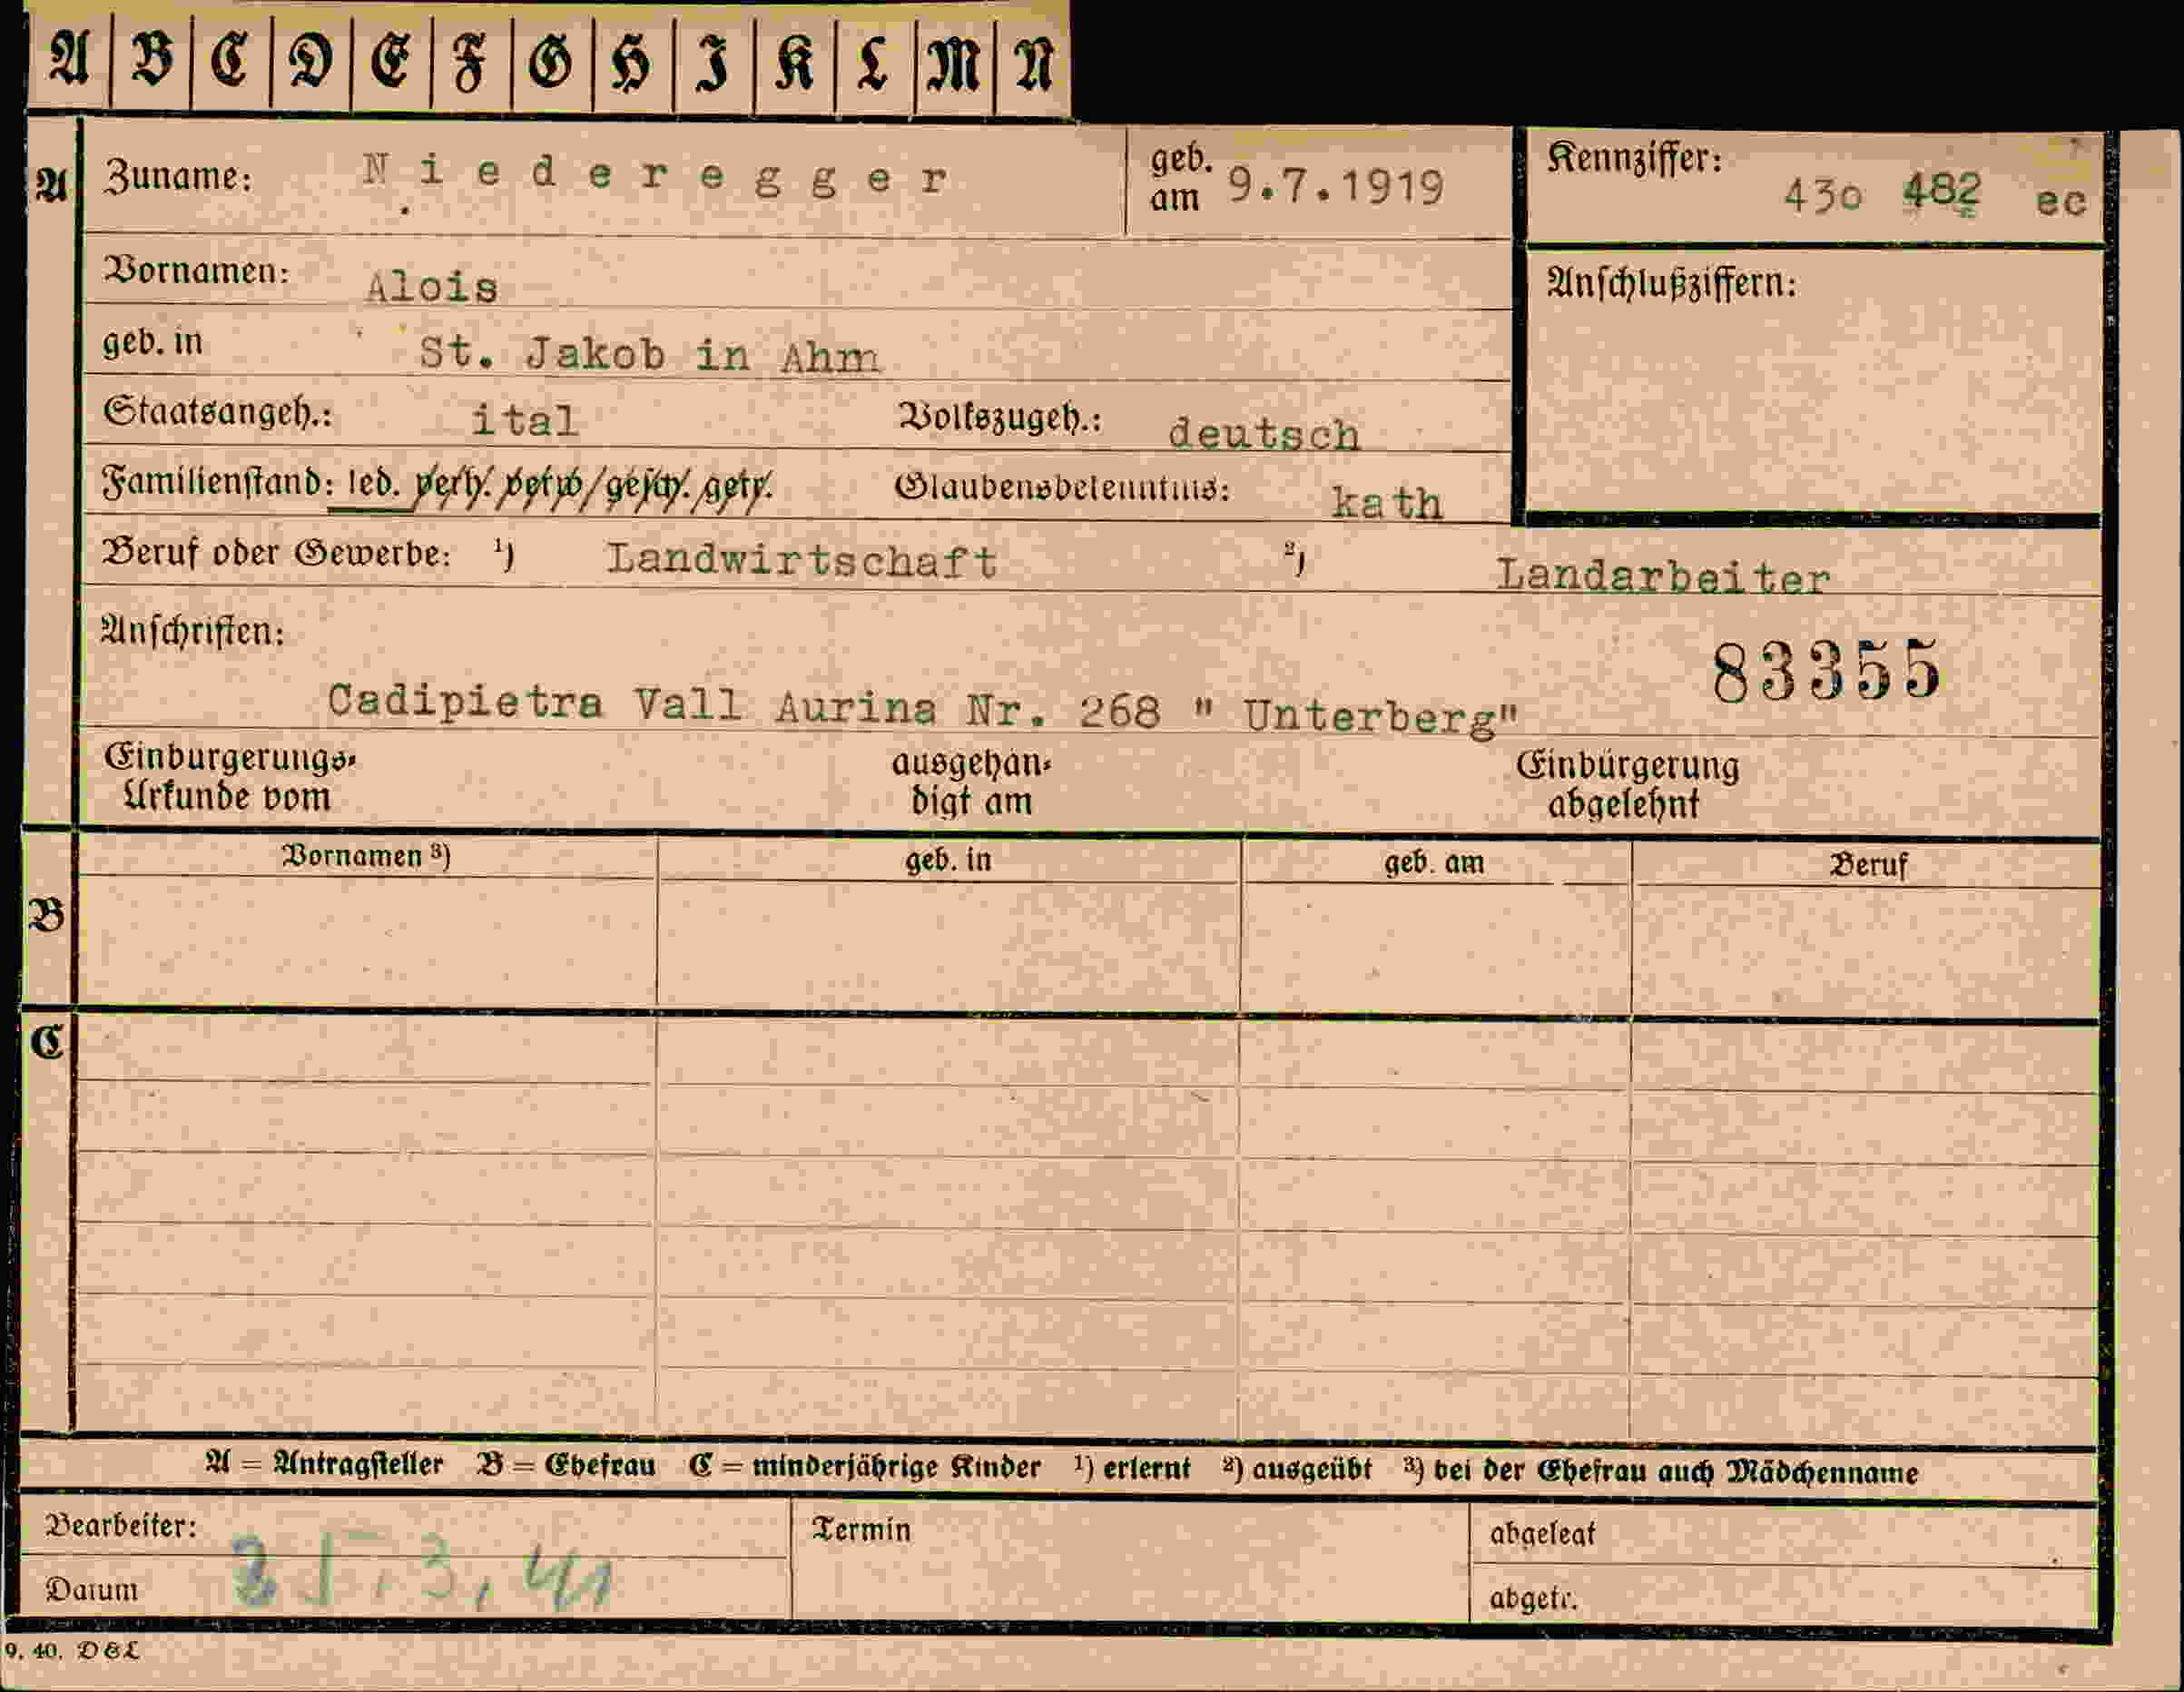 A B C D E F G H I K L M N
A Zuname: Niederegger geb. am 9.7.1919 Kennziffer: 43o 482 ec
Vornamen: Alois Anschlußziffern:
geb. in St. Jakob in Ahm
Staatsangeh.: ital Volkszugeh.: deutsch
Familienstand: led. verh. verw. gesch. getr. Glaubensbekenntnis: kath
Beruf oder Gewerbe: ¹) Landwirtschaft ²) Landarbeiter
Anschriften:
83355
Cadipietra Vall Aurina Nr. 268 " Unterberg"
Einbürgerungs- ausgehän- Einbürgerung
Urkunde vom digt am abgelehnt
Vornamen ³) geb. in geb. am Beruf
B
C
A = Antragsteller B = Ehefrau C = minderjährige Kinder ¹) erlernt ²) ausgeübt ³) bei der Ehefrau auch Mädchenname
Bearbeiter: Termin abgelegt
Datum 25.3.41 abgetr.
9. 40. D&L